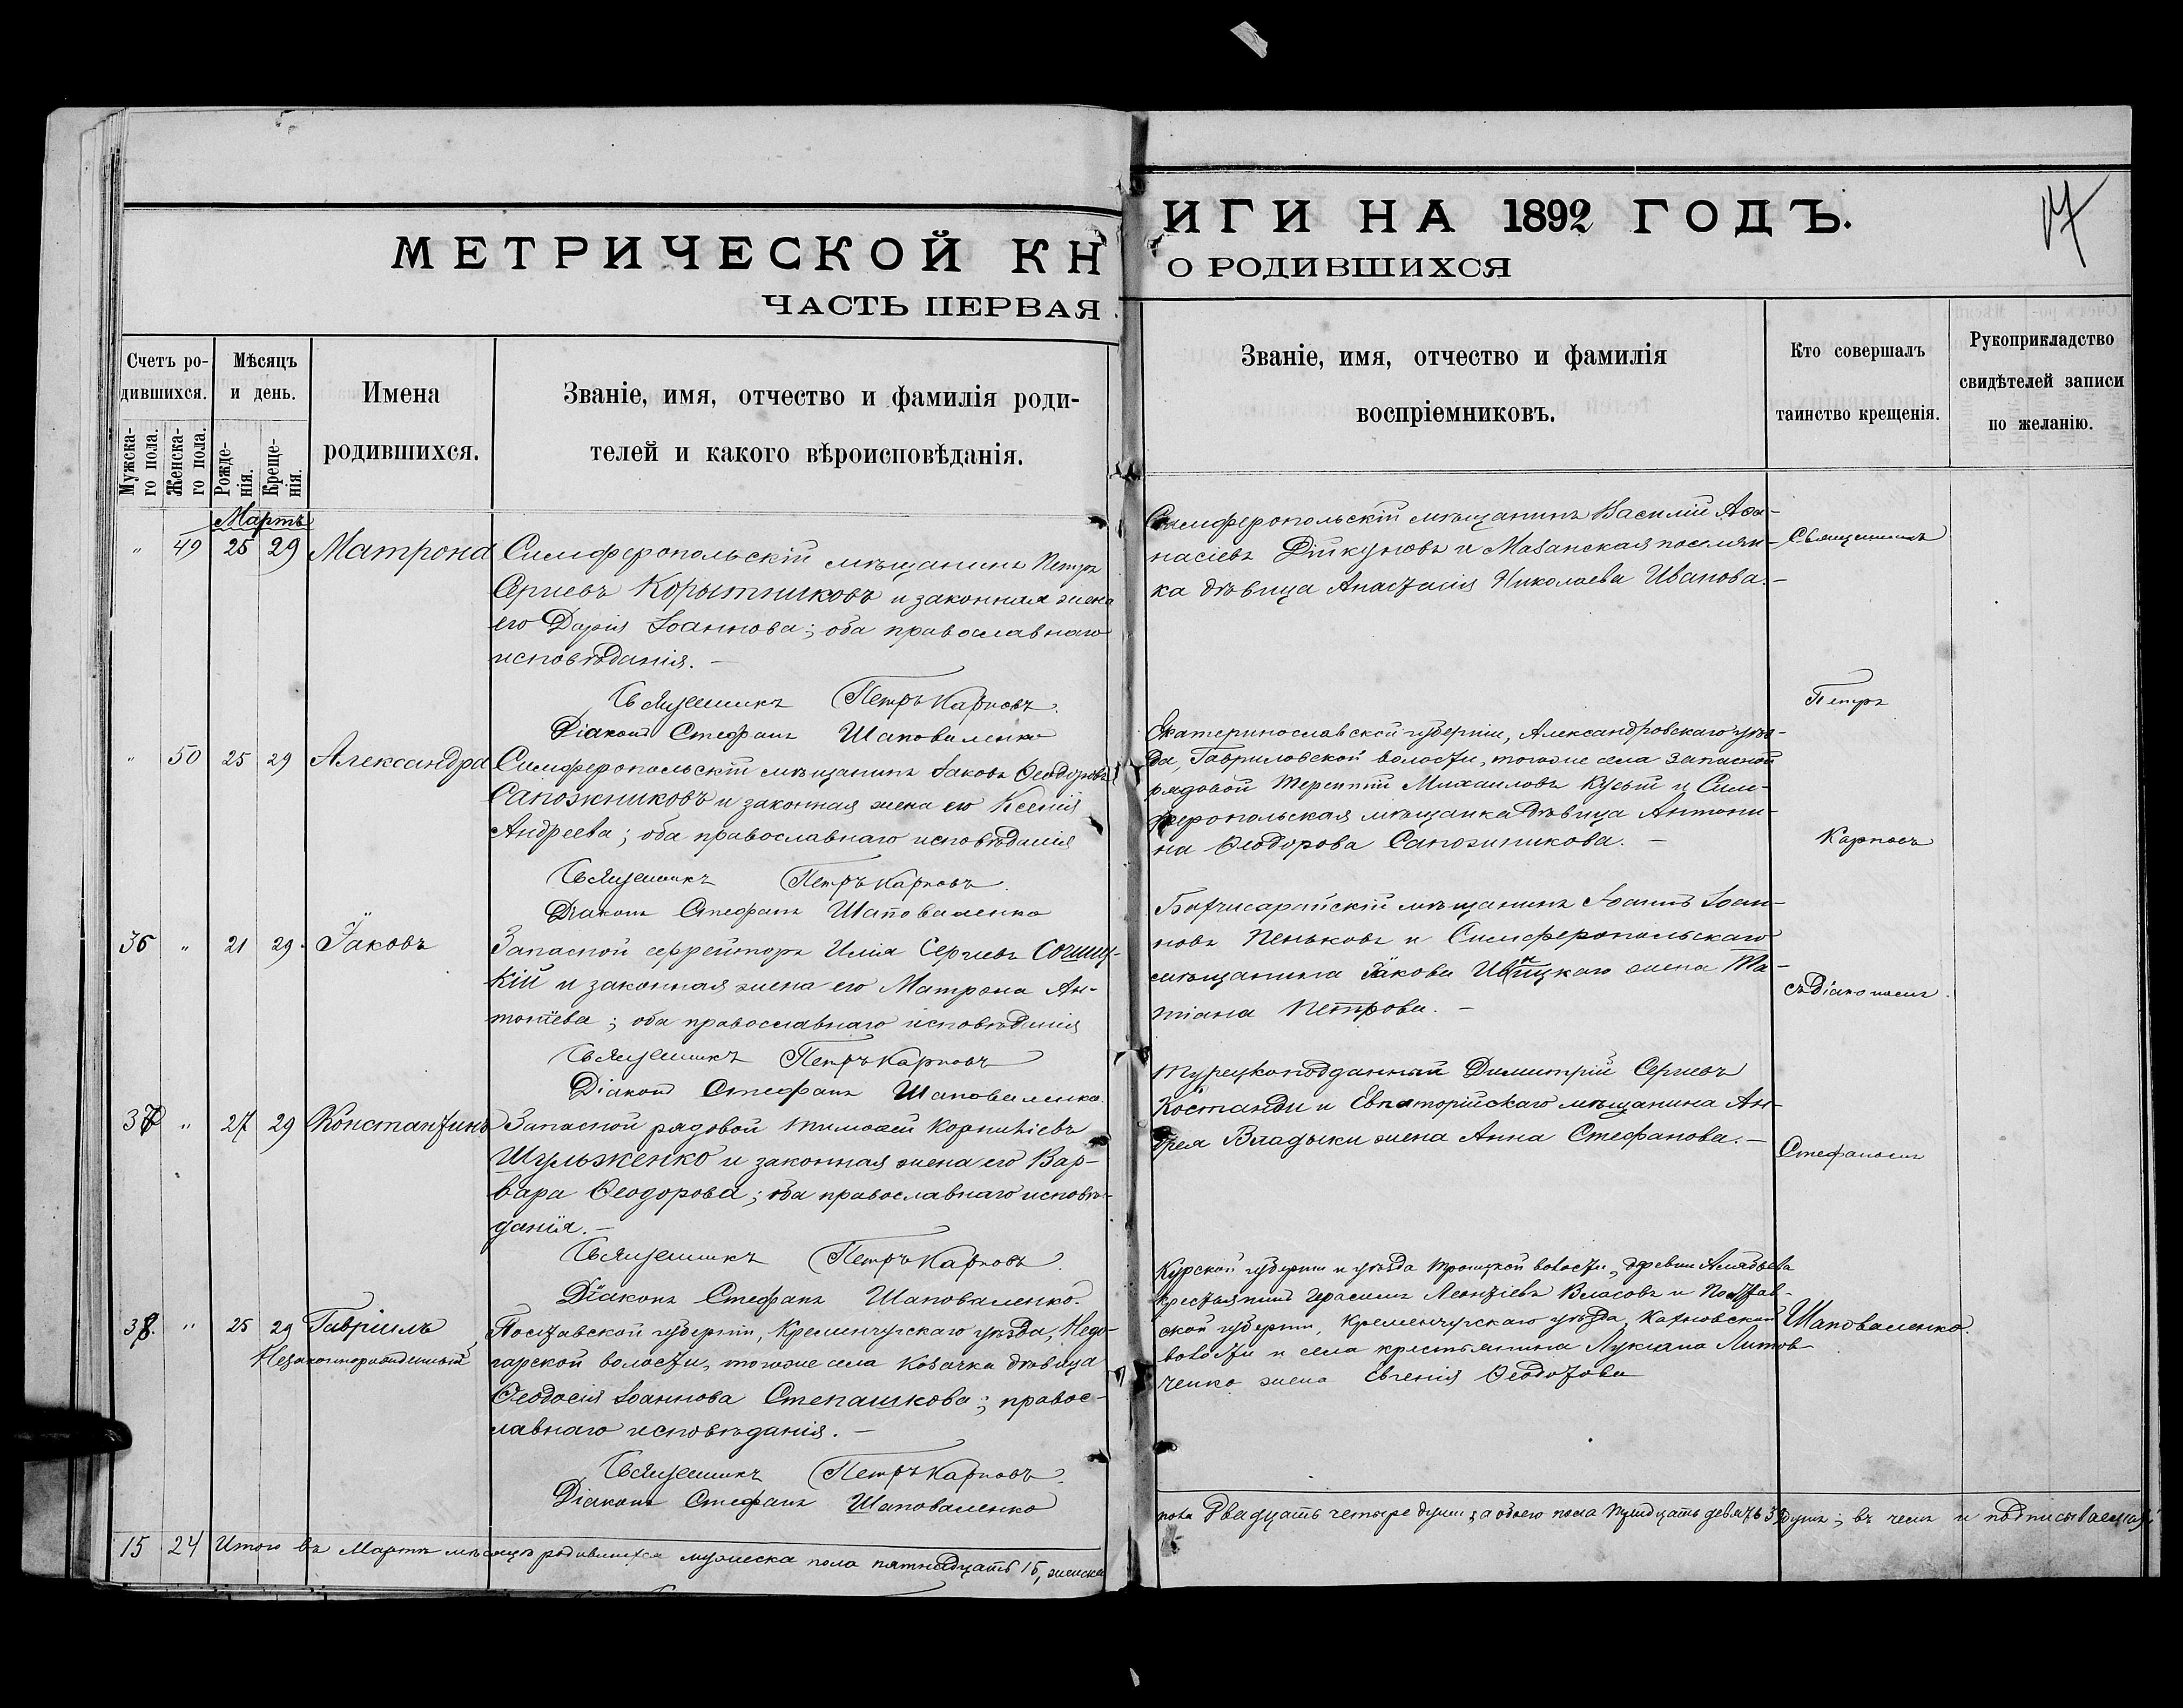 МЕТРИЧЕСКОЙ КН
ИГИ НА 1892 ГОДЪ.
17
ЧАСТЬ ПЕРВАЯ
О РОДИВШИХСЯ
Счетъ ро-
дившихся.
Мужска-
го пола.
Женска-
го пола.
Мѣсяцъ
и день.
Рожде-
нія.
Креще-
нія.
Имена
родившихся.
Званіе, имя, отчество и фамилія роди-
телей и какого вѣроисповѣданія.
Званіе, имя, отчество и фамилія
воспріемниковъ.
Кто совершалъ
таинство крещенія.
Рукоприкладство
свидѣтелей записи
по желанію.
Мартъ
" 49 25 29 Матрона
Симферопольскій мѣщанинъ Петръ
Сергіевъ Корытниковъ и законная жена
его Дарія Іоаннова; оба православнаго
исповѣданія. –
Священникъ Петръ Карповъ.
Діаконъ Стефанъ Шаповаленко
Симферопольскій мѣщанинъ Василій Аѳа-
насіевъ и Мазанская поселян-
ка дѣвица Анастасія Николаева Иванова. –
Священникъ
Петръ
Карповъ
съ діакономъ
Стефаномъ
Шаповаленко.
" 50 25 29 Александра
Симферопольскій мѣщанинъ Іаковъ Ѳеодоровъ
Сапожниковъ и законная жена его Ксенія
Андреева; оба православнаго исповѣданія
Священникъ Петръ Карповъ.
Діаконъ Стефанъ Шаповаленко
Екатеринославской губерніи, Александровскаго уѣз-
да, Гавриловской волости, тогоже села запасной
рядовой Терентій Михаиловъ Куцый и Сим-
феропольская мѣщанка дѣвица Антони-
на Ѳеодорова Сапожникова. –
36 " 21 29 Іаковъ
Запасной ефрейторъ Илія Сергіевъ
кій и законная жена его Матрона Ан-
тоніева; оба православнаго исповѣданія
Священникъ Петръ Карповъ
Діаконъ Стефанъ Шаповаленко.
Бахчисарайскій мѣщанинъ Іоаннъ Іоан-
новъ Пеньковъ и Симферопольскаго
мѣщанина Іакова жена Та-
тіана Петрова. –
37 " 27 29 Константинъ
Запасной рядовой Тимоѳей Корниліевъ
Шульженко и законная жена его Вар-
вара Ѳеодорова; оба православнаго исповѣ-
данія. –
Священникъ Петръ Карповъ.
Діаконъ Стефанъ Шаповаленко.
Турецкоподданный Димитрій Сергіевъ
Костанди и Евпаторійскаго мѣщанина Ан-
дрея Владыки жена Анна Стефанова. –
38. " 25 29 Гавріилъ
Незаконнорожденный
Полтавской губерніи, Кременчугскаго уѣзда, Недо-
гарской волости, тогоже села козачка дѣвица
Ѳеодосія Іоаннова Степашкова; правос-
лавнаго исповѣданія. –
Священникъ Петръ Карповъ.
Діаконъ Стефанъ Шаповаленко
Курской губерніи и уѣзда Троицкой волости, деревни
крестьянинъ Герасимъ Леонтіевъ Власовъ и Полтав-
ской губерніи, Кременчугскаго уѣзда,
волости и села крестьянина Лукіана Литов-
ченко жена Евгенія Ѳеодотова
15 24 Итого въ Мартѣ мѣсяцѣ родившихся мужеска пола пятнадцать 15, женска
пола двадцать четыре души, а обоего пола тридцать девять 39 душъ; въ чемъ и подписываемся: